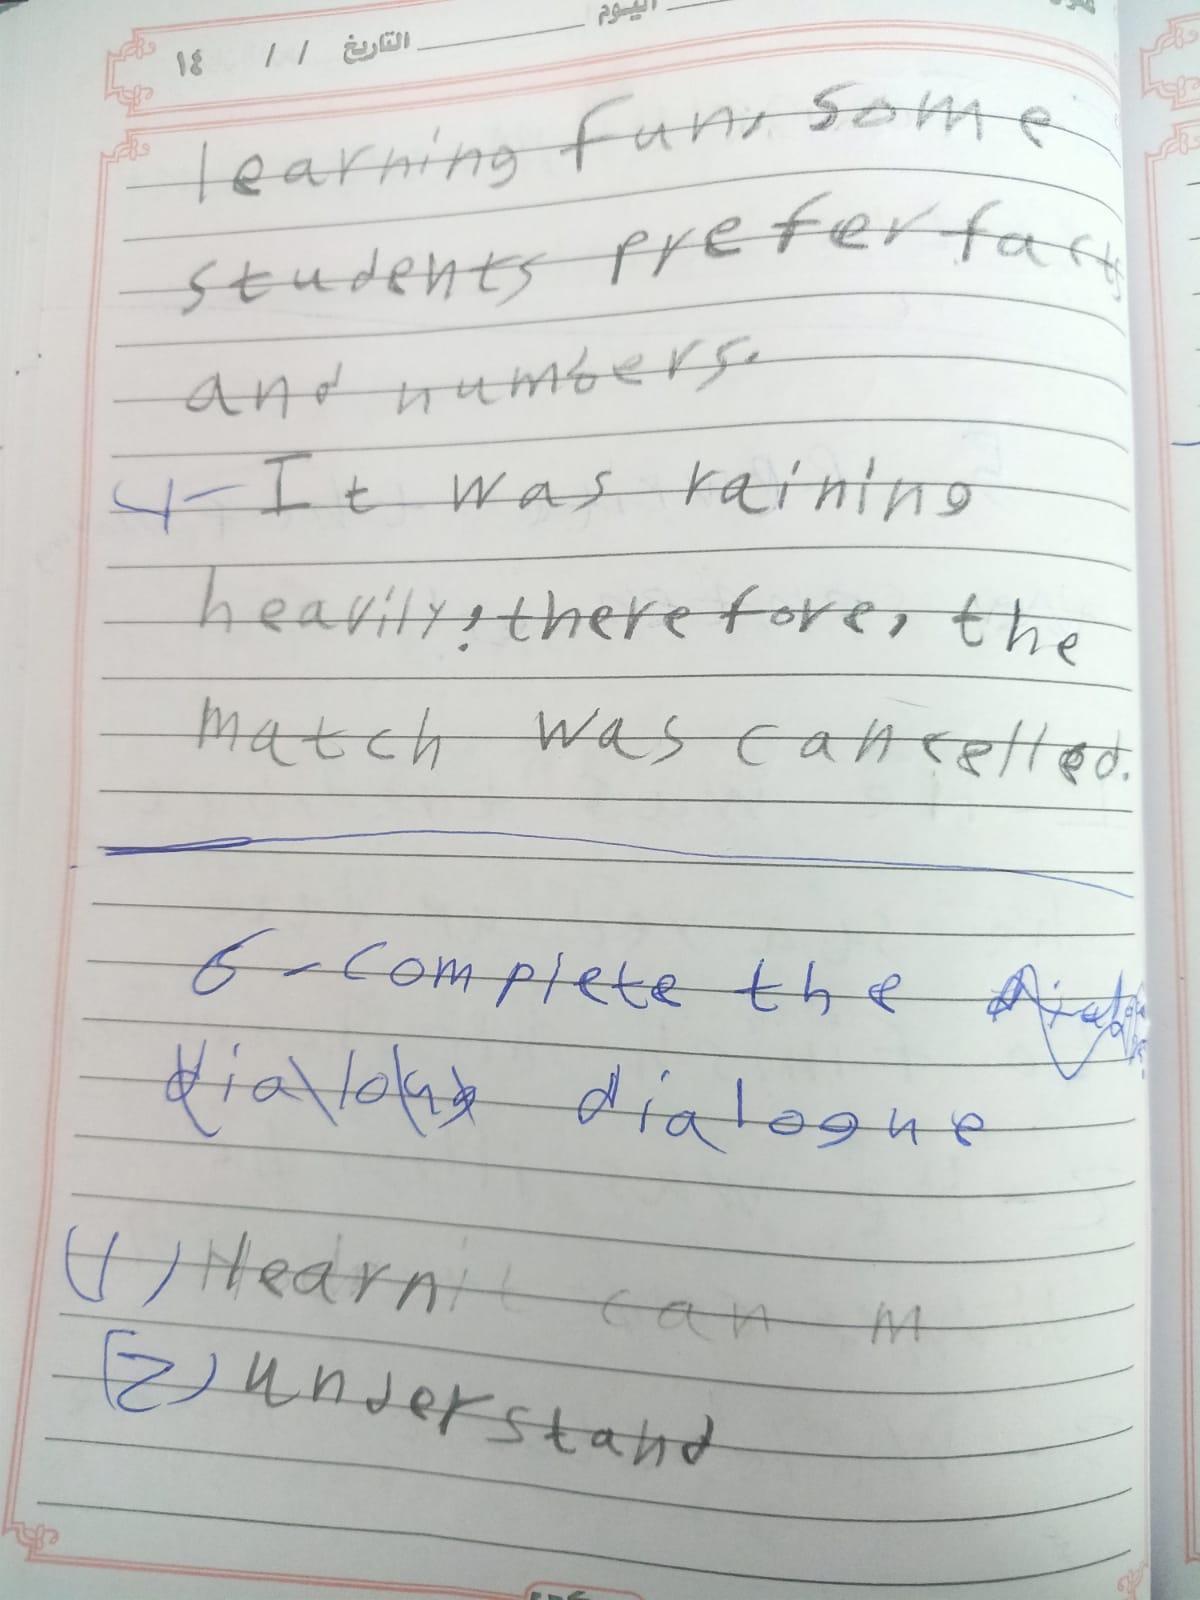 اليوم
التاريخ / / ١٤
learning fun, some
students prefer facts
and numbers.
4- It was raining
heavily; therefore, the
match was cancelled.
6 - complete the
dialogue
1) Hearn can m
(2) understand